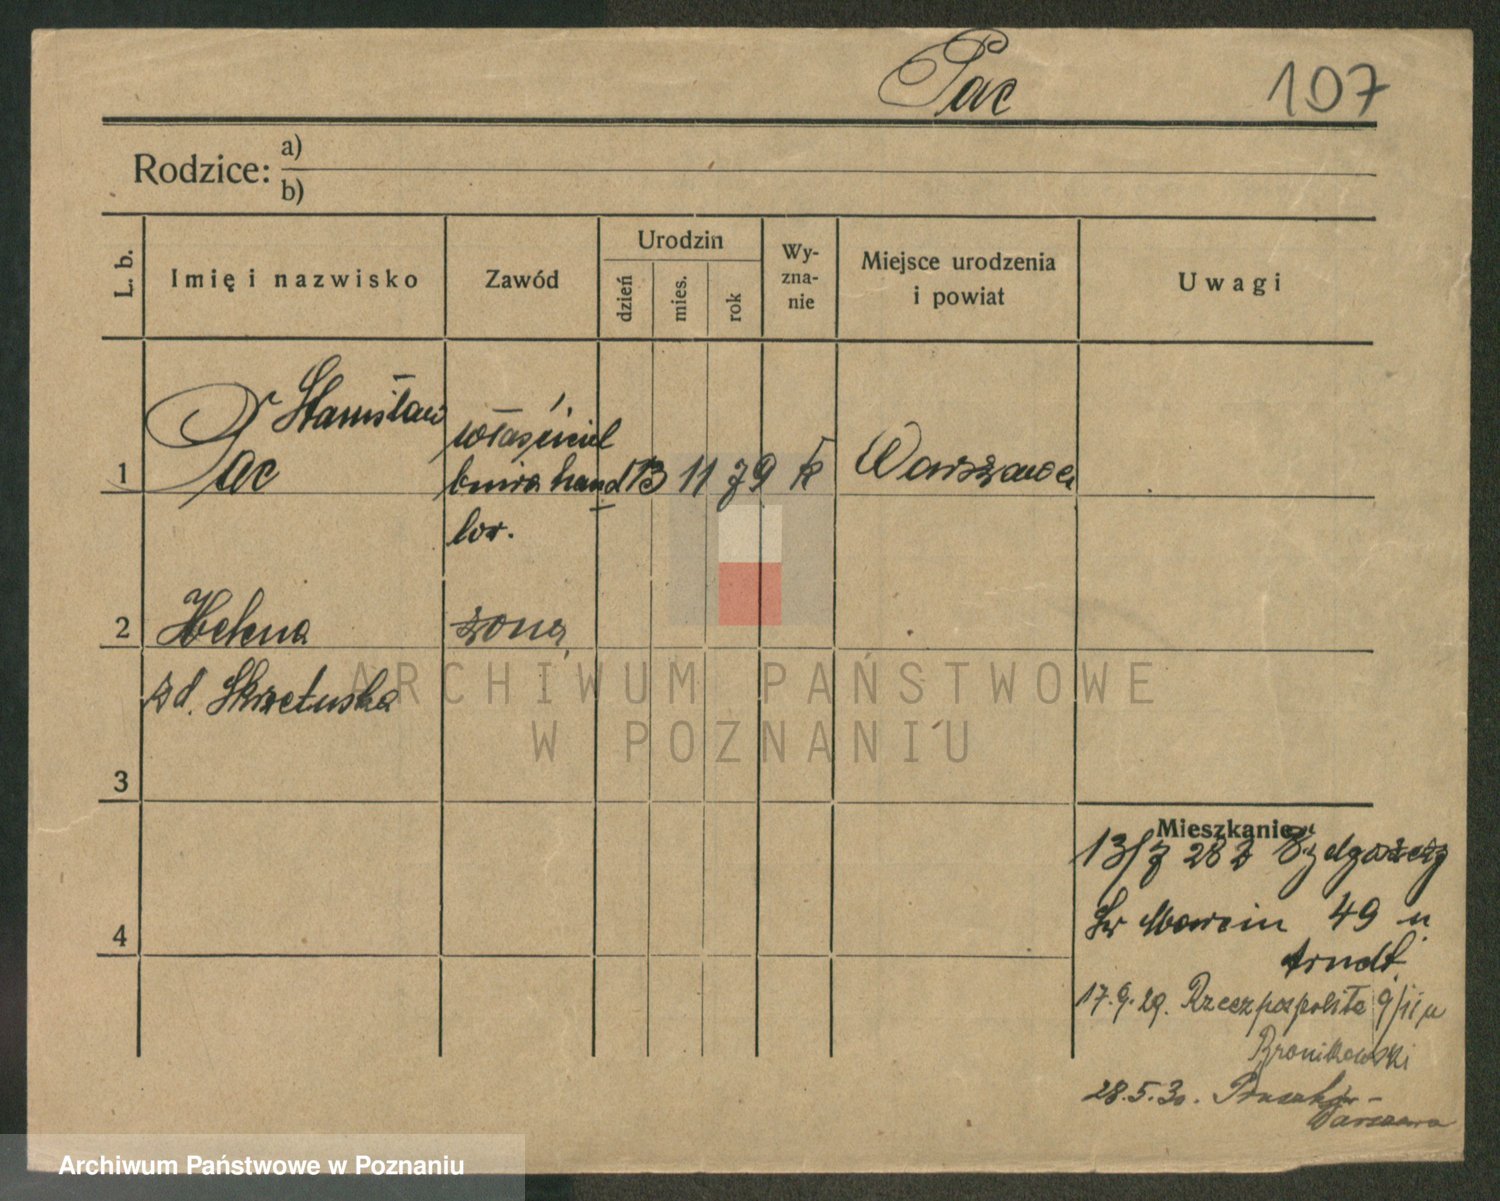 Pac 107
Rodzice: a)
b)
L. b. Imię i nazwisko Zawód Urodzin dzień mies. rok Wy-zna-nie Miejsce urodzenia i powiat Uwagi
Stanisław
1 Pac właściciel
biura hand 13 11 79 k Warszawa
lor.
2 Helena żona
zd. Skrzetuska
3
4
Mieszkanie
13/7 28 z Bydgoszczy
Św Marcin 49 u
Arndt.
17.9.29. Rzeczpospolita 9/II u
Bronikowski
28.5.30.
Warszawa
ARCHIWUM PAŃSTWOWE
W POZNANIU
Archiwum Państwowe w Poznaniu